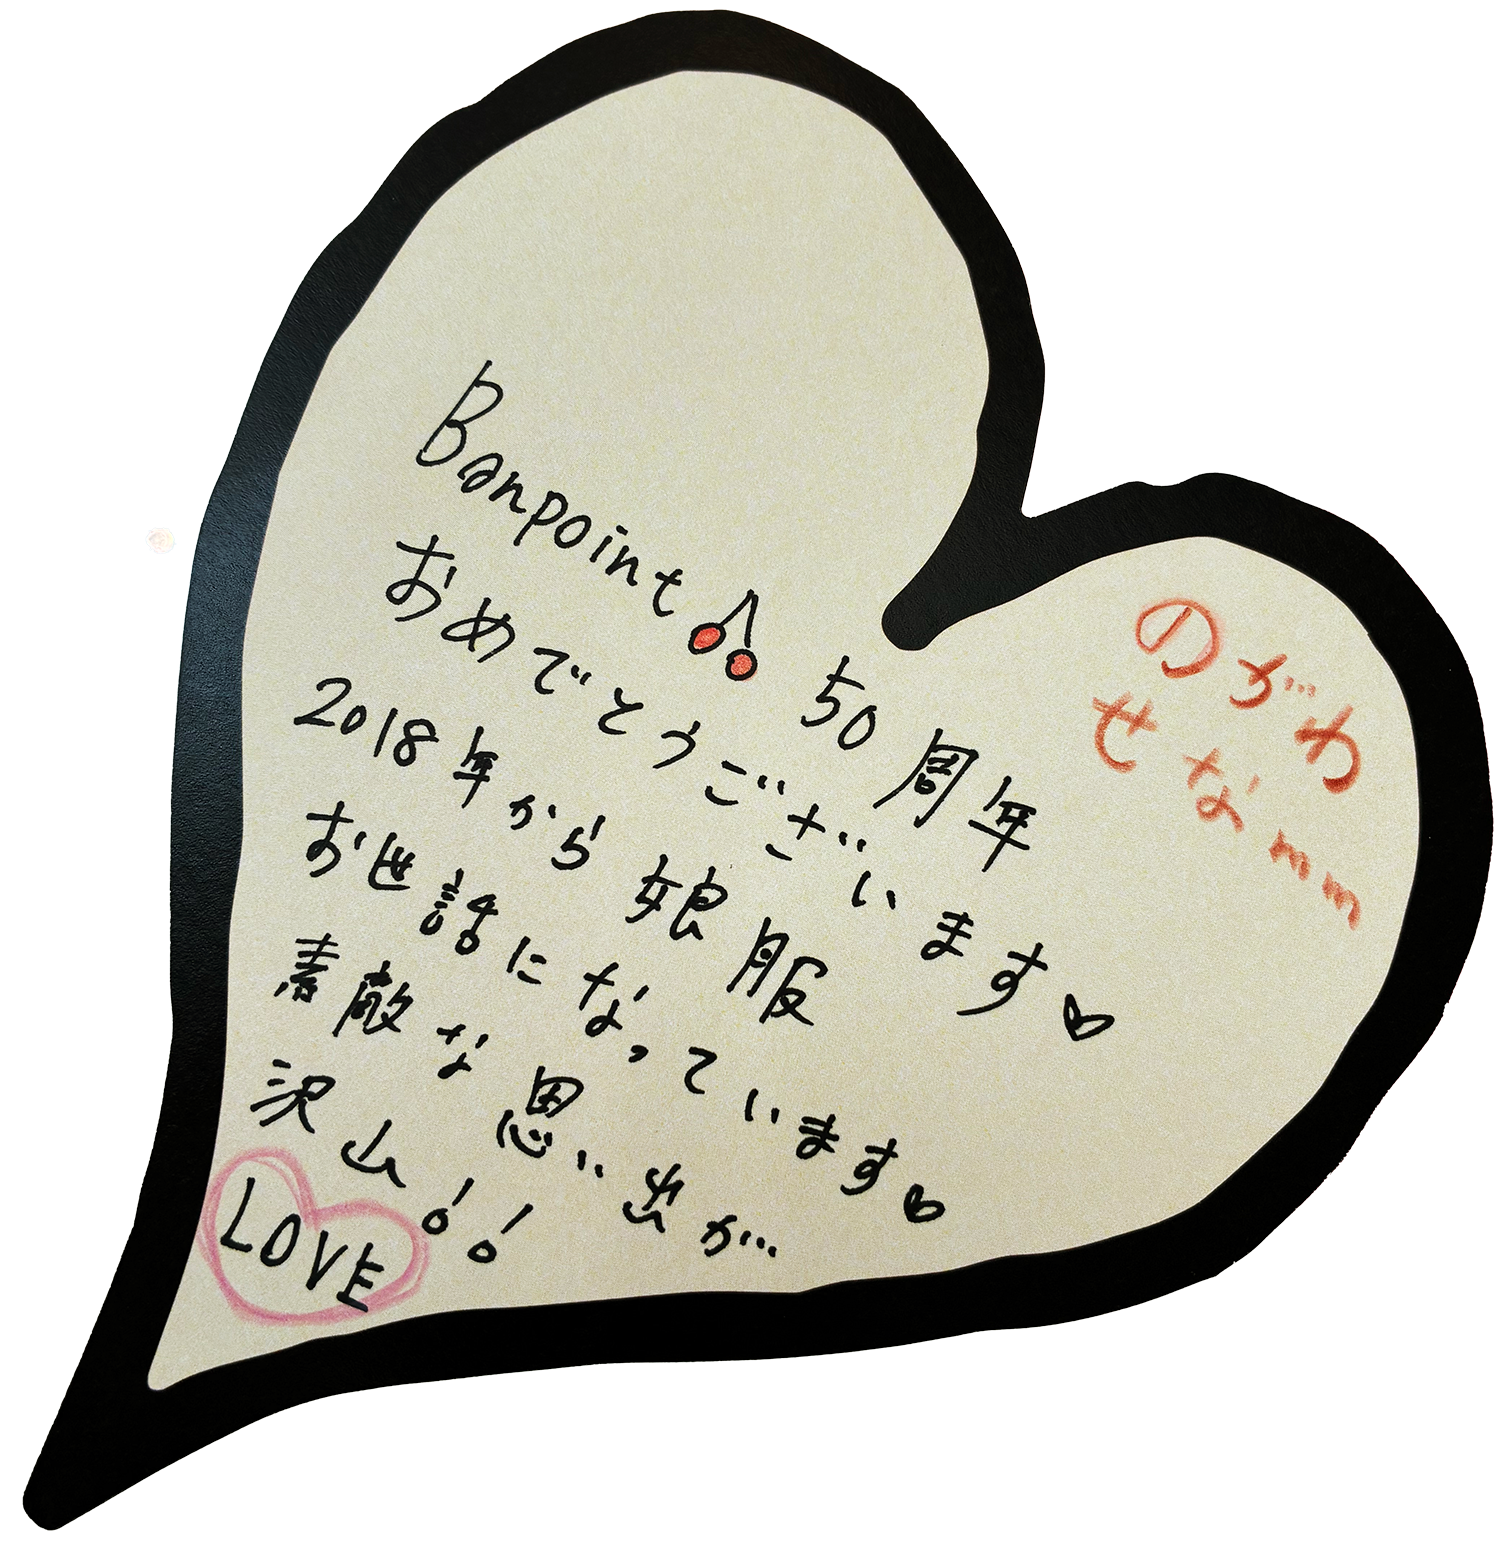 Bonpoint 50周年
おめでとうございます♡
2018年から娘服
お世話になっています♡
素敵な思い出が…
沢山!!
LOVE
のがわ
せなmm